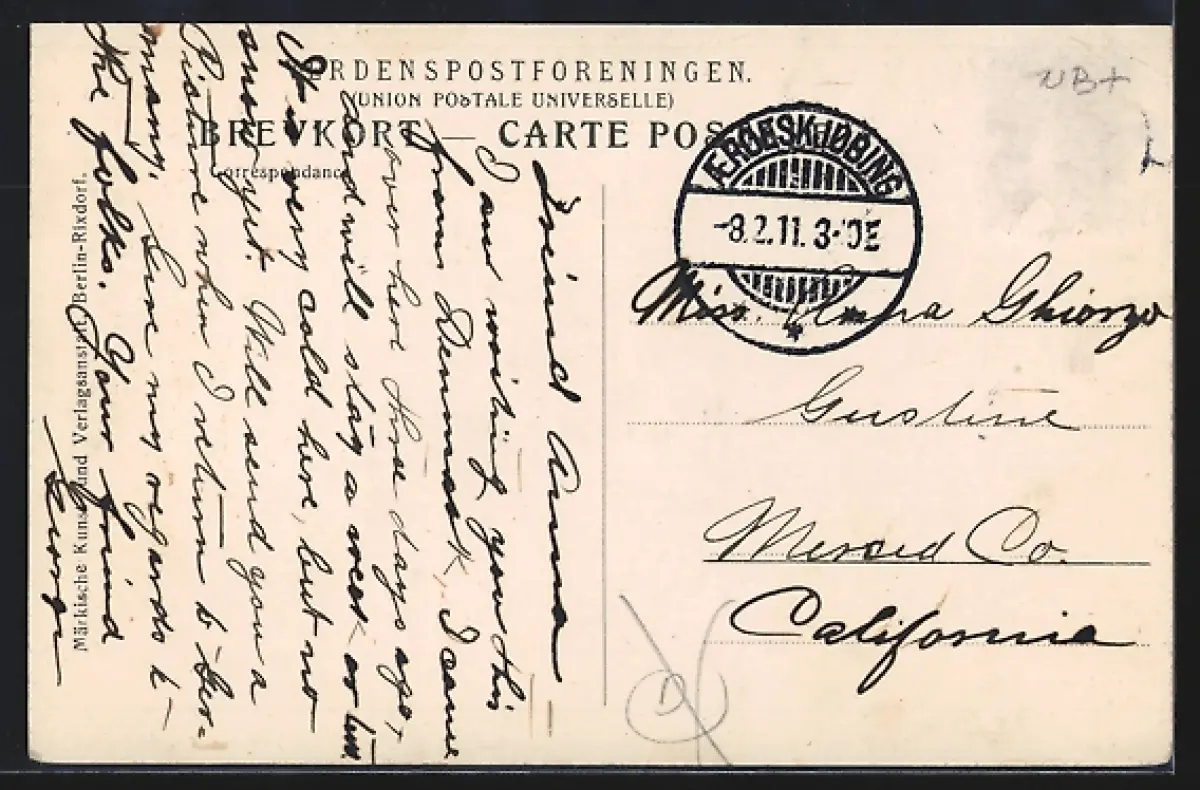 VERDENSPOSTFORENINGEN.
(UNION POSTALE UNIVERSELLE)
BREVKORT — CARTE POSTALE
Correspondance
Märkische Kunst und Verlagsanstalt Berlin-Rixdorf.
NB+
ÆRØESKJØBING
-8.2.11. 3-10E
Miss. Anna Ghiorzo
Gustine
Merced Co.
California
Freind Anna —
I am writing you this
from Denmark, I came
over here three days ago,
and will stay a week or two
It is very cold here, but no
snow yet. Will send you a
Picture when I return to Ger-
many, Give my regards to
the folks. Your freind
George